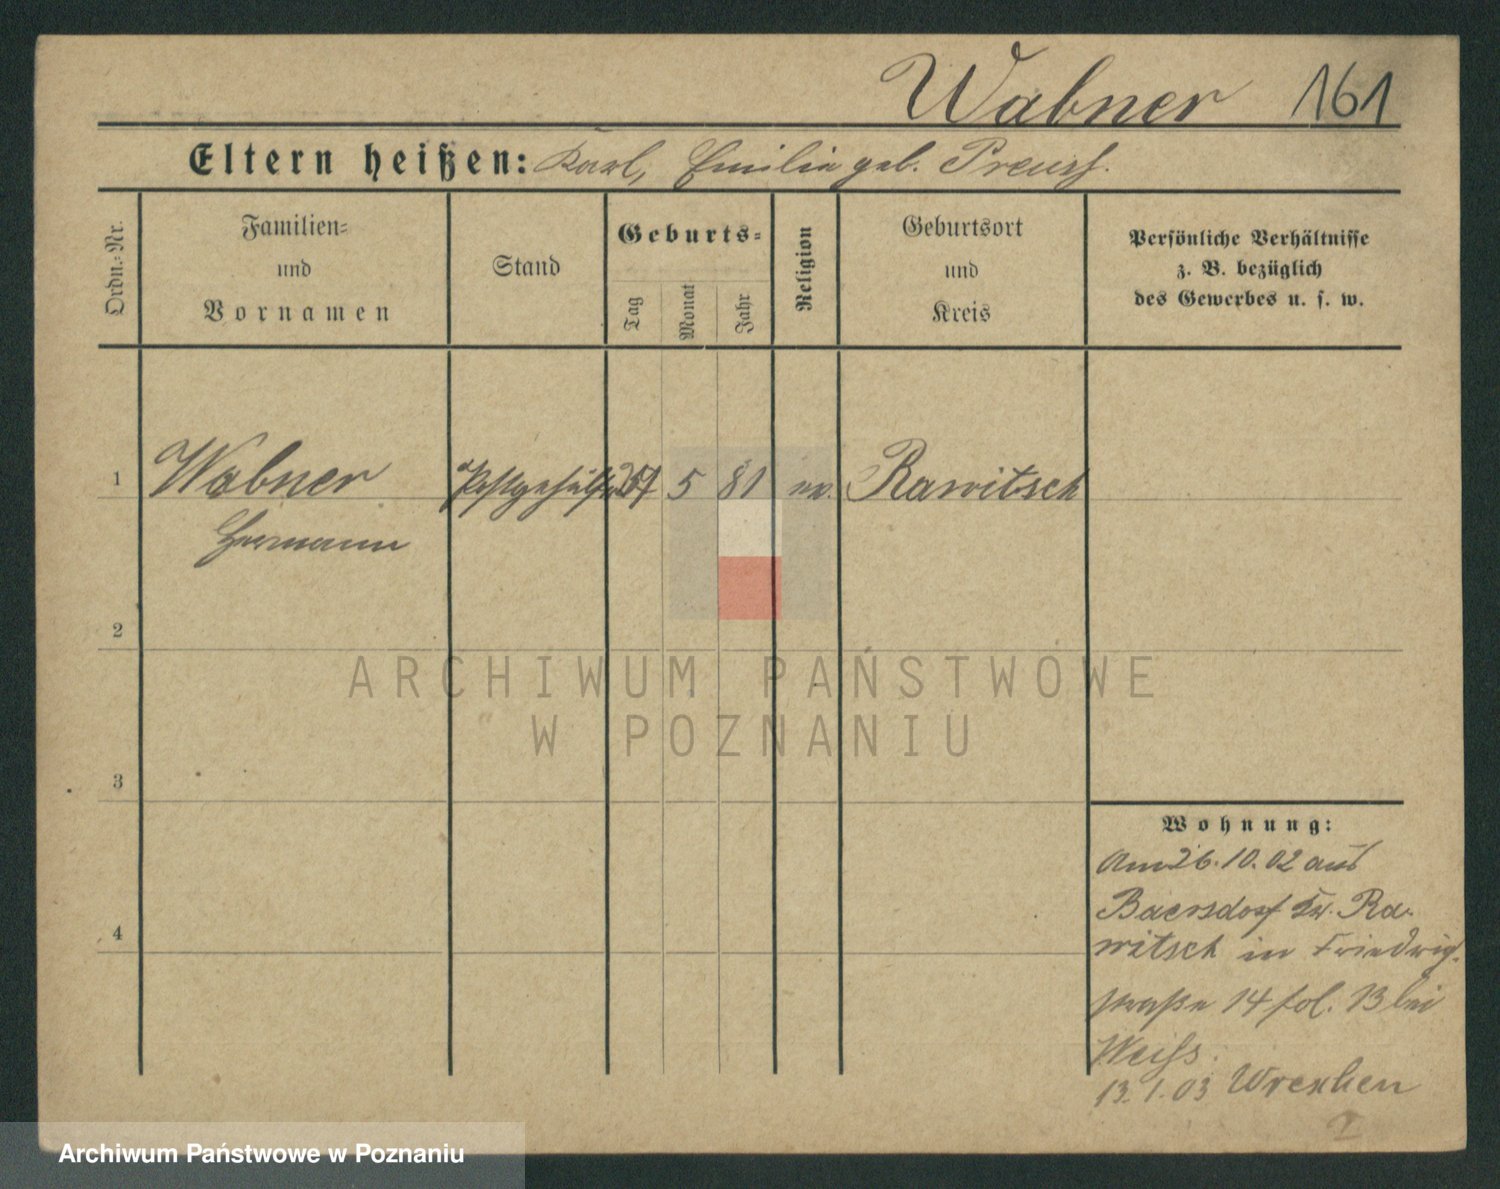 Wabner 161
Eltern heißen: Karl, Emilie geb. Preuß.
Ordn.-Nr.
Familien-
und
Vornamen
Stand
Geburts-
Tag
Monat
Jahr
Religion
Geburtsort
und
Kreis
Persönliche Verhältnisse
z. B. bezüglich
des Gewerbes u. s. w.
1 Wabner Postgehülfe 5 81 ev. Rawitsch
Hermann
2
3
4
Wohnung:
Am 26.10.02 aus
Baersdorf Kr. Ra-
witsch in
straße 14 fol. 13 bei
Weiß.
13.1.03 Wreschen
ARCHIWUM PAŃSTWOWE
W POZNANIU
Archiwum Państwowe w Poznaniu